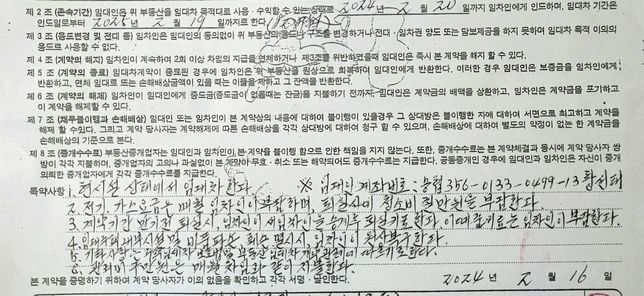 제 2 조 (존속기간) 임대인은 위 부동산을 임대차 목적대로 사용·수익할 수 있는 상태로 2024년 2월 20일까지 임차인에게 인도하며, 임대차 기간은
인도일로부터 2025년 2월 19일까지로 한다.
제 3 조 (용도변경 및 전대 등) 임차인은 임대인의 동의없이 위 부동산의 용도나 구조를 변경하거나 전대·임차권 양도 또는 담보제공을 하지 못하며 임대차 목적 이외의
용도로 사용할 수 없다.
제 4 조 (계약의 해지) 임차인이 계속하여 2회 이상 차임의 지급을 연체하거나 제3조를 위반하였을때 임대인은 즉시 본 계약을 해지 할 수 있다.
제 5 조 (계약의 종료) 임대차계약이 종료된 경우에 임차인은 위 부동산을 원상으로 회복하여 임대인에게 반환한다. 이러한 경우 임대인은 보증금을 임차인에게
반환하고, 연체 임대료 또는 손해배상금액이 있을 때는 이들을 제하고 그 잔액을 반환한다.
제 6 조 (계약의 해제) 임차인이 임대인에게 중도금(중도금이 없을때는 잔금)을 지불하기 전까지, 임대인은 계약금의 배액을 상환하고, 임차인은 계약금을 포기하고
이 계약을 해제할 수 있다.
제 7 조 (채무불이행과 손해배상) 임대인 또는 임차인이 본 계약상의 내용에 대하여 불이행이 있을경우 그 상대방은 불이행한 자에 대하여 서면으로 최고하고 계약을
해제 할 수 있다. 그리고 계약 당사자는 계약해제에 따른 손해배상을 각각 상대방에 대하여 청구 할 수 있으며, 손해배상에 대하여 별도의 약정이 없는 한 계약금을
손해배상의 기준으로 본다.
제 8 조 (중개수수료) 부동산중개업자는 임대인과 임차인이 본 계약을 불이행 함으로 인한 책임을 지지 않는다. 또한, 중개수수료는 본 계약체결과 동시에 계약 당사자 쌍
방이 각각 지불하며, 중개업자의 고의나 과실없이 본 계약이 무효·취소 또는 해약되어도 중개수수료는 지급한다. 공동중개인 경우에 임대인과 임차인은 자신이 중개
의뢰한 중개업자에게 각각 중개수수료를 지급한다.
특약사항 1. 현시설 상태에서 임대차한다. ※ 임대인 계좌번호: 농협 356-0133-0499-13
2. 전기 가스요금은 매월 임차인이 부담하며, 퇴실시 청소비 만원을 부담한다.
3. 계약기간 만기전 퇴실시, 임차인이 새임차인을 승계후 퇴실키로한다. 이때 중개료는 임차인이 부담한다.
4. 임대차 내부시설 및 비품 파손 시, 임차인이 원상복구한다.
5. 기타사항은 임대차 따르기로한다.
6. 만원은 매월 차임과 같이 지불한다.
본 계약을 증명하기 위하여 계약 당사자가 이의 없음을 확인하고 각각 서명·날인한다. 2024년 2월 16일